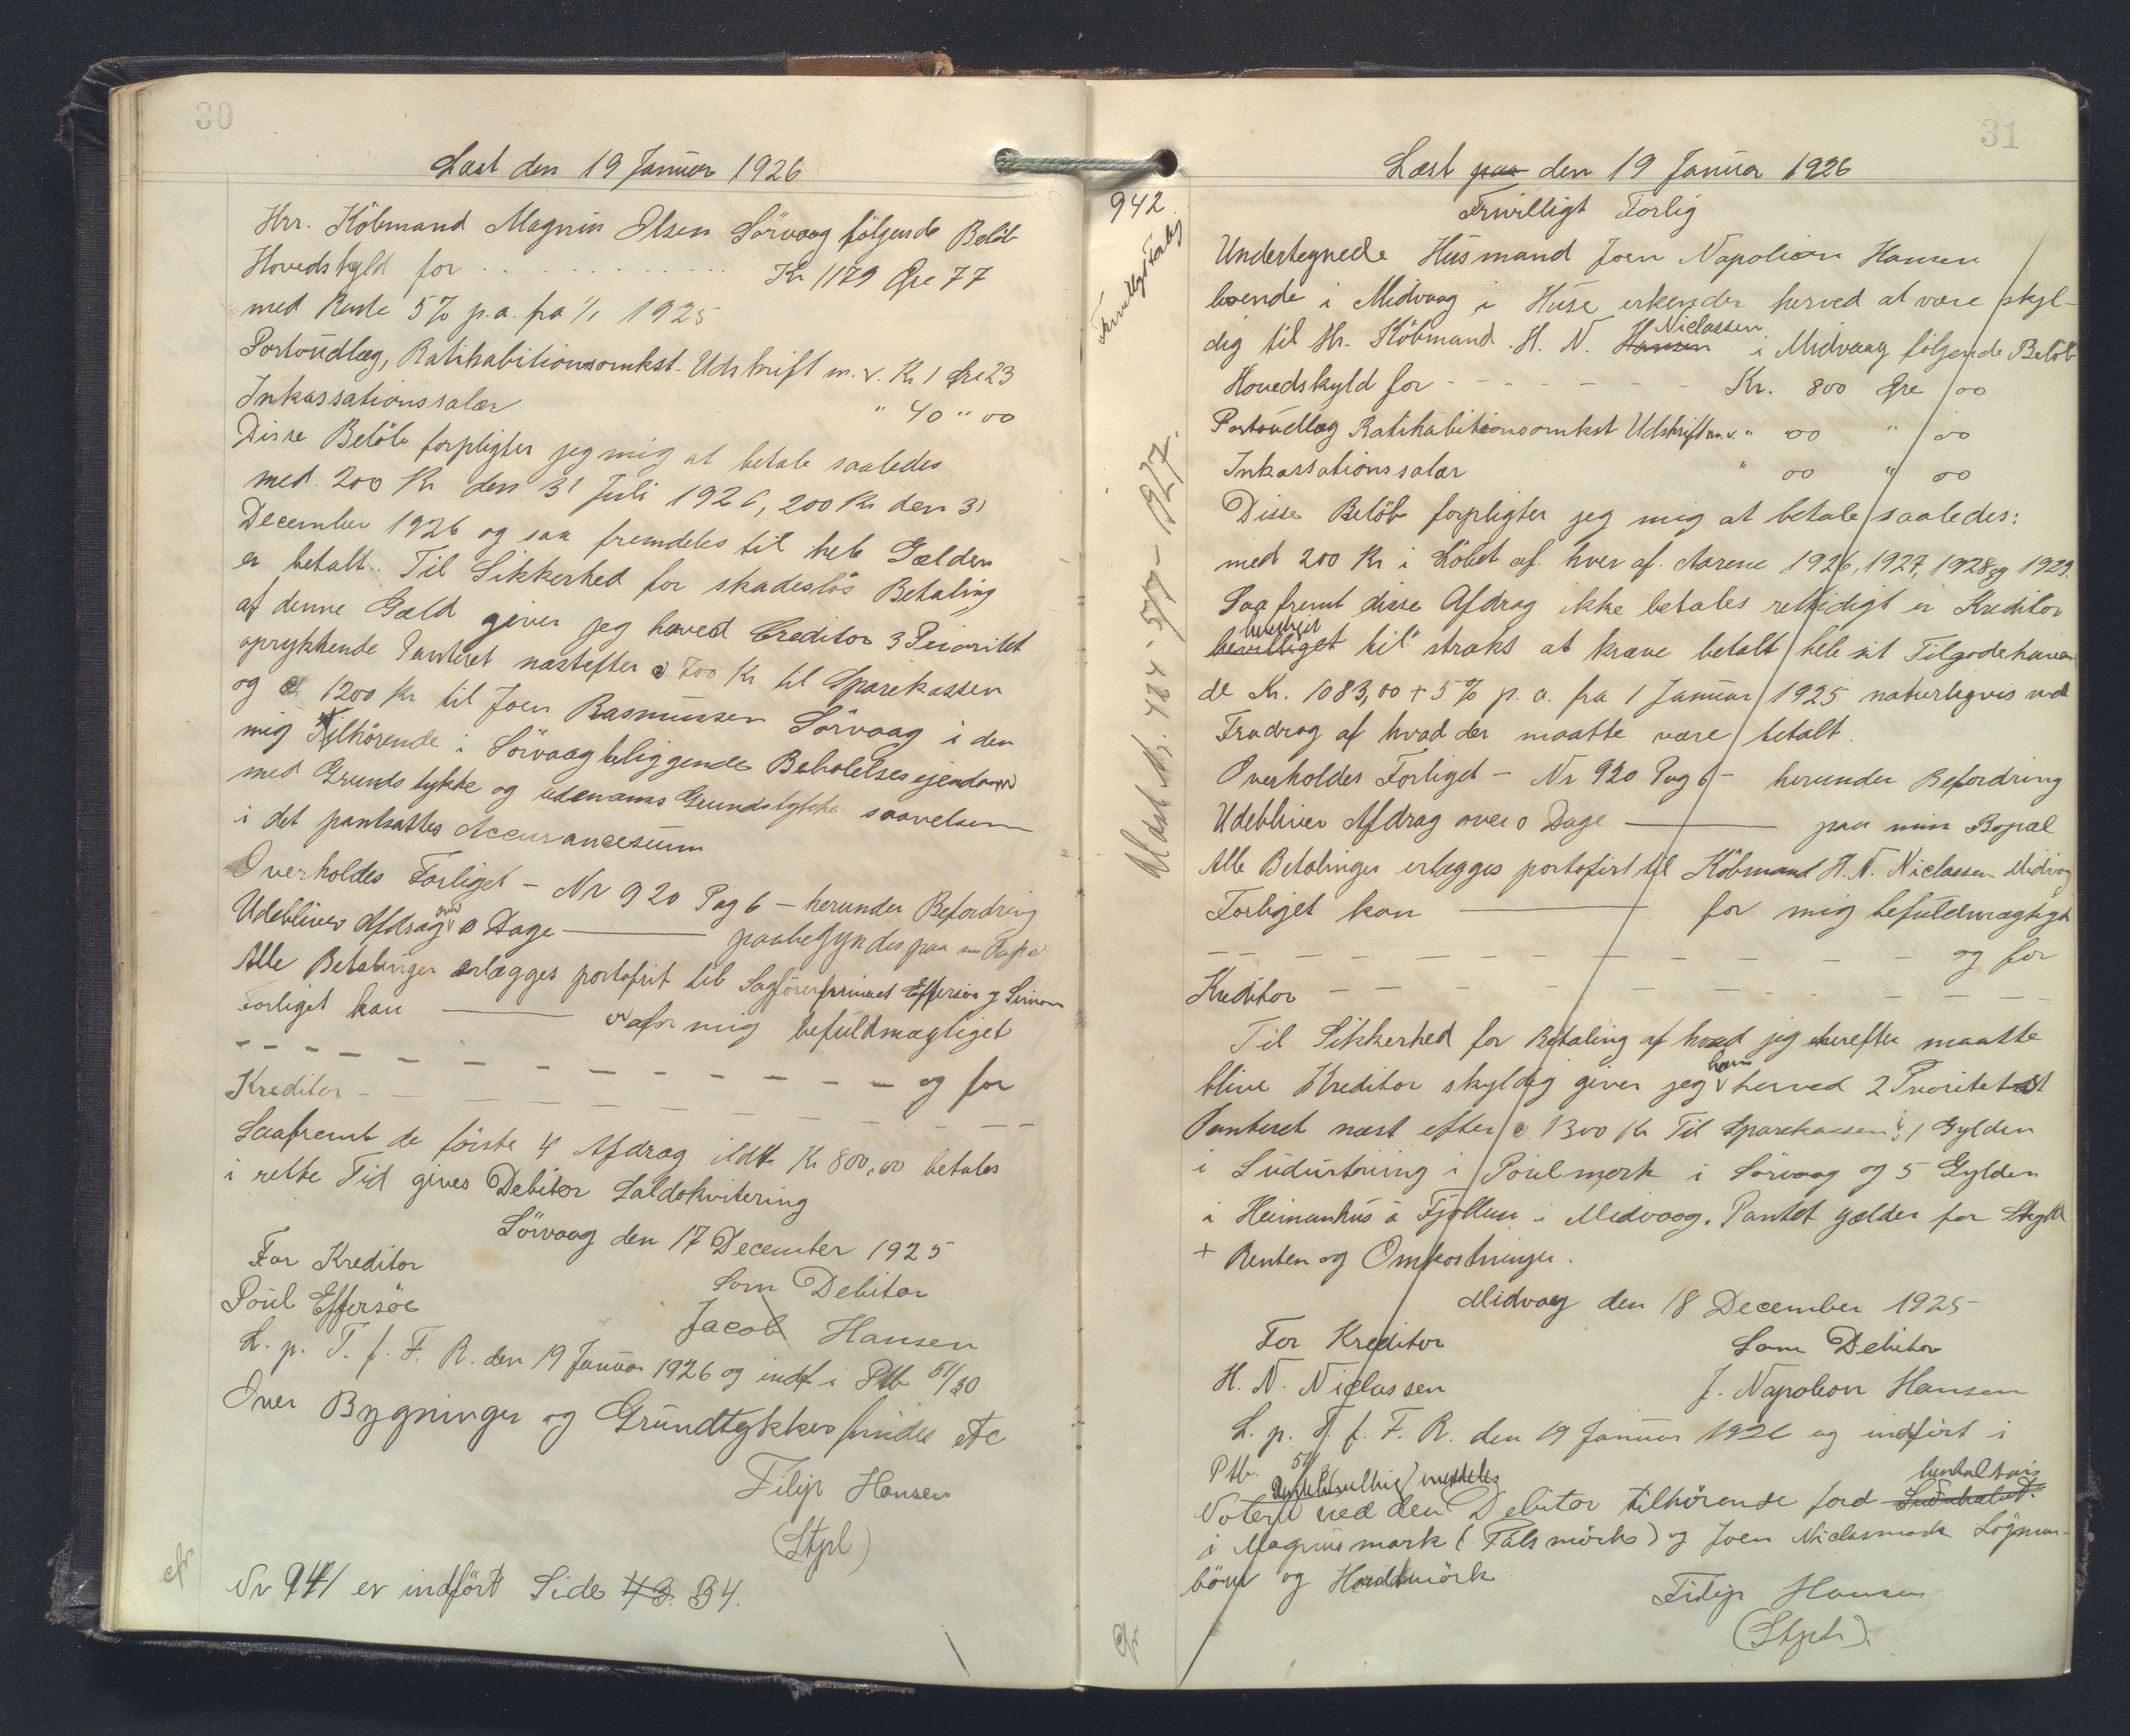 30
Læst den 19 Januar 1926
Hrr. Köbmand Magnus Olsen Sörvaag fölgende Belöb
Hovedskyld for . . . . . . . . . . . Kr 1179 Øre 77
med Rente 5% p.a. fra 1/1 1925
Portoudlæg, Ratihabitionsomkst. Udskrift m. v. Kr 1 Øre 23
Inkassationssalær " 40 " 00
Disse Belöb forpligter jeg mig at betale saaledes
med 200 Kr den 31 Juli 1926, 200 Kr den 31
December 1926 og saa fremdeles til hele Gælden
er betalt. Til Sikkerhed for skadeslös Betaling
af denne Gæld giver jeg herved Creditor 3 Prioritet
oprykkende Panteret næstefter c 700 Kr til Sparekassen
og 1200 Kr til Joen Rasmussen Sörvaag i den
mig Tilhörende i Sörvaag beliggende Beboelsesejendom
med Grundstykke og udenoms Grundstykke saavelsom
i det pantsattes Accurancesum
Overholdes Forliget - Nr 920 Pag 6 - herunder Befordring
Udebliver Afdrag over 0 Dage ——— paabegyndes paa
Alle Betalinger erlægges portofrit til Sagförerfirmaet Effersöe &
Forliget kan ——— for mig befuldmægtiget
– – – – – – – – – – – og for
Kreditor – – – – – – – – – –
Saafremt de förste 4 Afdrag ialt Kr 800,00 betales
i rette Tid gives Debitor Saldokvitering
Sörvaag den 17 December 1925
For Kreditor Som Debitor
Poul Effersöe Jacob Hansen
L. p. T. f. F. R. den 19 Januar 1926 og indf i Ptb 51/30
Over Bygninger og Grundtykker findes etc
Filip Hansen
(Stpl)
cfr
Nr 941 er indfört Side 43. 34.
31
Læst paa den 19 Januar 1926
942
Frivilligt Forlig
Frivilligt Forlig
Undertegnede Husmand Joen Napolion Hansen
boende i Midvaag i Huse erkender herved at være skyl-
dig til Hr. Köbmand H. N. Hansen Niclassen i Midvaag fölgende Belöb
Hovedskyld for - - - - - - - Kr. 800 Øre 00
Portoudlæg Ratihabitionsomkst Udskrift m.v. " 00 " 00
Inkassationssalær " 00 " 00
Disse Belöb forpligter jeg mig at betale saaledes:
med 200 Kr i Löbet af hver af Aarene 1926, 1927, 1928 og 1929.
Saafremt disse Afdrag ikke betales rettidigt er Kreditor
bevilliget til straks at kræve betalt hele sit Tilgodehaven-
de Kr. 1083,00 + 5% p. a. fra 1 Januar 1925 naturligvis ved
Fradrag af hvad der maatte være betalt.
Overholdes Forliget - Nr 920 Pag 6 - herunder Befordring
Udebliver Afdrag over 0 Dage ——— paa min Bopæl
Alle Betalinger erlægges portofrit til Köbmand H. N. Niclassen Midvaag
Forliget kan ——— for mig befuldmægtiget
– – – – – – – – – – – og for
Kreditor – – – – – – – – – –
Til Sikkerhed for Betaling af hvad jeg herefter maatte
blive Kreditor skyldig giver jeg ham herved 2 Prioritet
Panteret næst efter c 1300 Kr Til Sparekassen i 1 Gylden
i Sudurtoung i Poulmork i Sörvaag og 5 Gylden
i Heimanhus á Fjöllum i Midvaag. Pantet gælder for Skyld
+ Renten og Omkostninger.
Midvag den 18 December 1925
For Kreditor Som Debitor
H. N. Niclassen J. Napoleon Hansen
L. p. T. f. F. R. den 19 Januar 1926 og indfört i
Ptb. 51/31 meddeles
Noteret ved den Debitor tilhörende Jord
i Magnusmark (Falsmörk) og Joen Niclasmark
og
Filip Hansen
(Stpl.)
Udst. Nr. 424 - 5/7 - 1927.
cfr